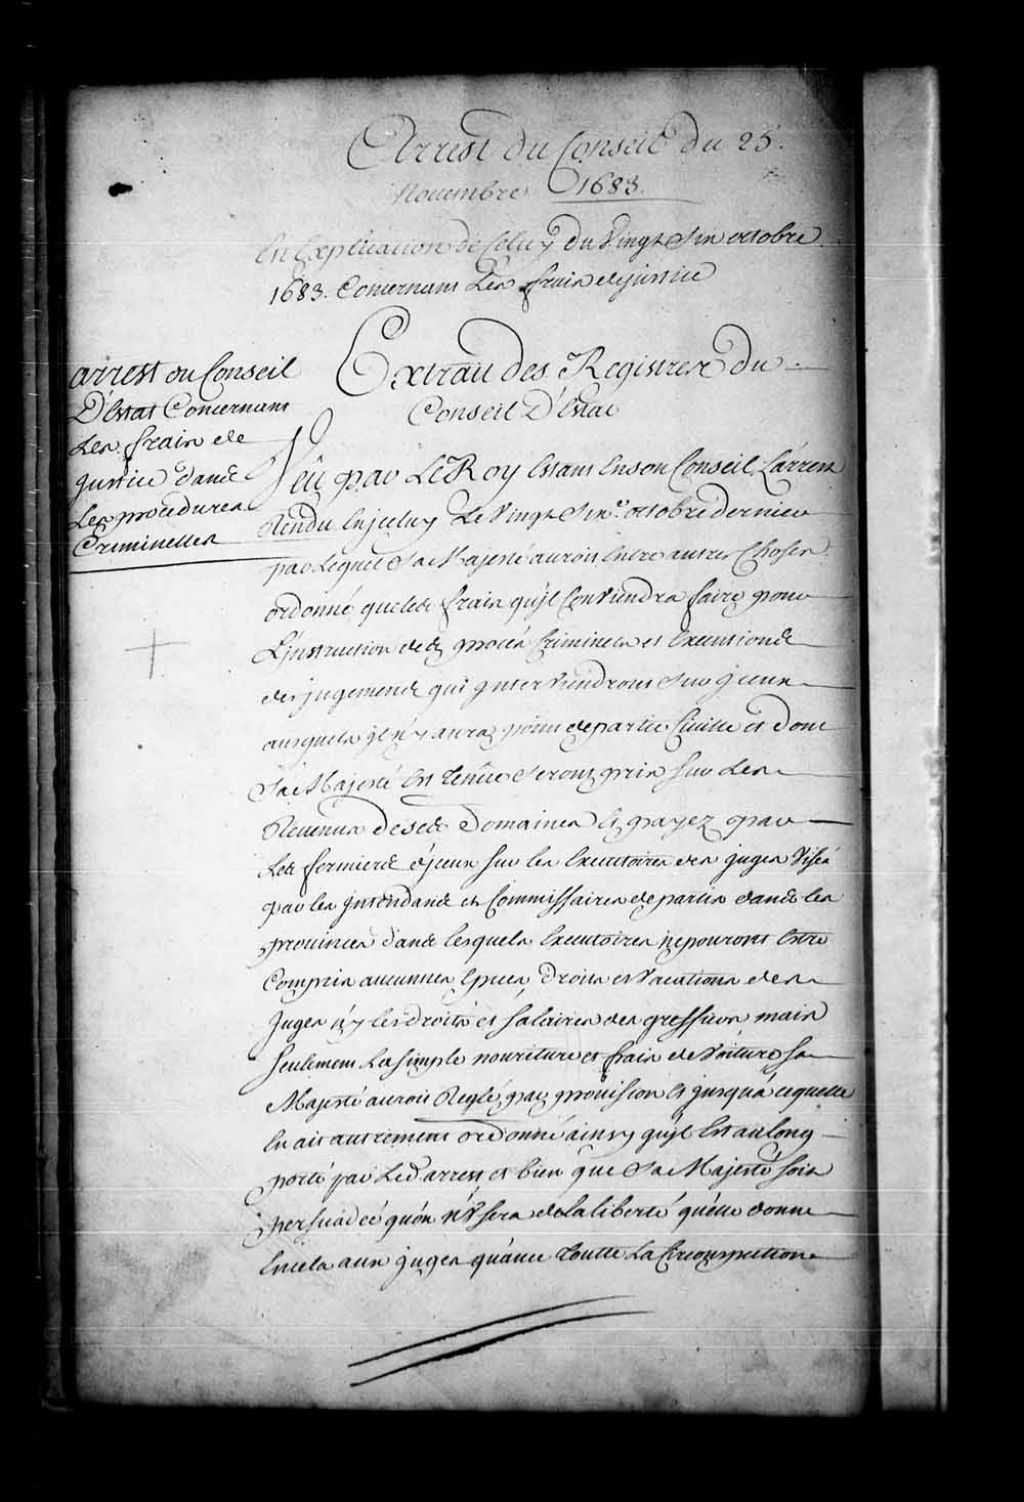 Arrest du Conseil du 25.
Novembre 1683.
En Explication de Celuy du Vingt Six octobre
1683. Concernant Les frais de justice
arrest du Conseil
D'Estat Concernant
Les frais de
Justice dans
Les procedures
Criminelles
Extrait des Registres du
Conseil D'Estat
Veü par Le Roy Estant En son Conseil L'arrest
Rendu En jceluy Le Vingt Six.e octobre dernier
par Lequel Sa Majesté auroit Entre autres Choses
ordonné que les frais qu'jl Conviendra faire pour
L'jnstruction des procés Criminels et Executions
des jugements qui jnterviendront sur jceux
ausquels jl n'y aura point de partie Civille et dont
Sa Majesté Est tenüe seront pris sur Les
Revenus de ses Domaines Et payez par
Les fermiers d'jceux sur les Executoires des juges Visés
par les jntendants et Commissaires departis dans les
provinces dans lesquels Executoires ne pouront Estre
Compris aucunnes Epices, droits et Vacations des
Juges n'y les droits et salaires des greffiers mais
seulement La simple nouriture et frais de Voiture, sa
Majesté auroit Reglé par provision Et jusqu'a ce quelle
En ait autrement ordonné ainsy qu'jl Est au long
porté par Led. arrest et bien que Sa Majesté soit
persuadeé qu'on n'Vsera de la liberté qu'elle donne
En cela aux juges qu'avec toutte La Circonspection